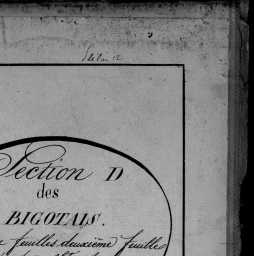 Section D
des
BIGOTAIS.
feuilles deuxième feuille